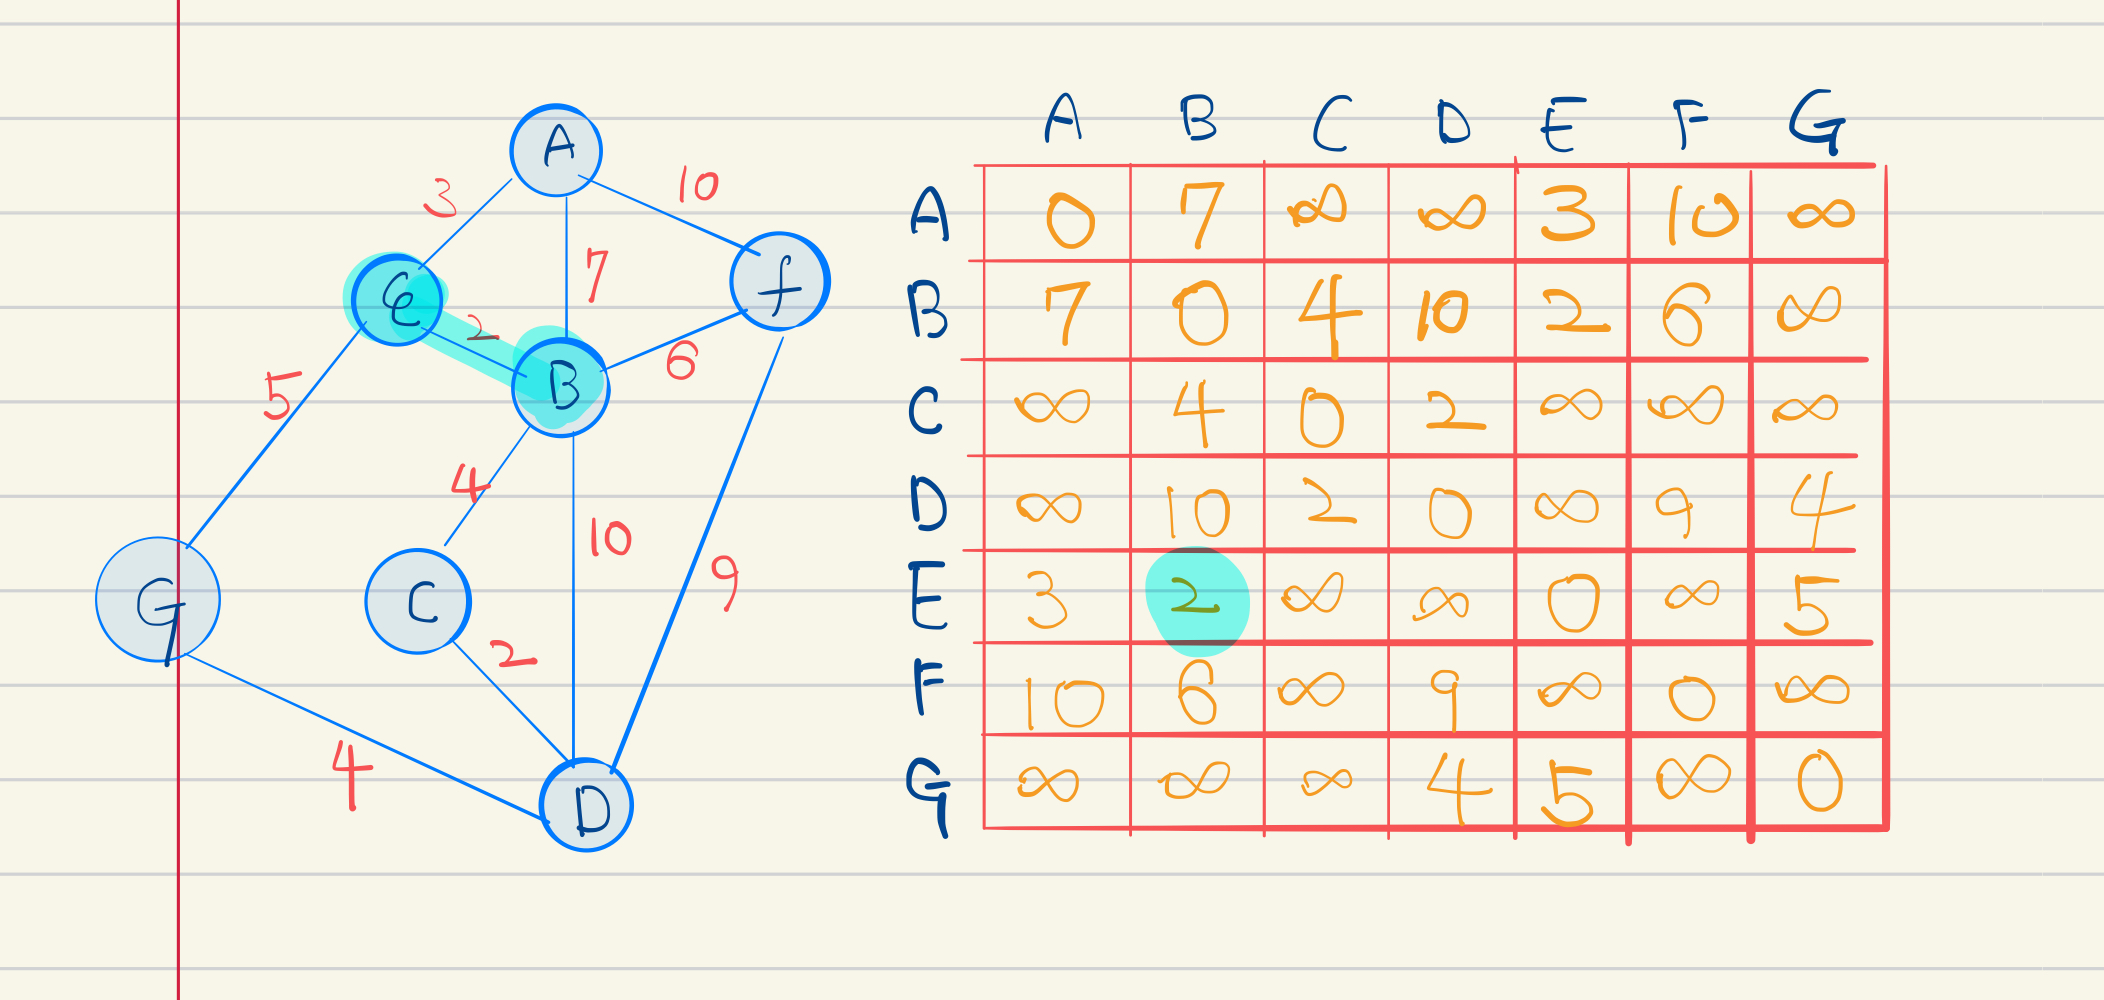 A
3
10
e
7
f
2
B
6
5
4
10
9
G
C
2
4
D
A B C D E F G
A 0 7 ∞ ∞ 3 10 ∞
B 7 0 4 10 2 6 ∞
C ∞ 4 0 2 ∞ ∞ ∞
D ∞ 10 2 0 ∞ 9 4
E 3 2 ∞ ∞ 0 ∞ 5
F 10 6 ∞ 9 ∞ 0 ∞
G ∞ ∞ ∞ 4 5 ∞ 0